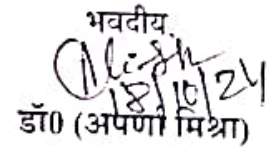 भवदीय
18/10/24
डॉ0 (अपर्णा मिश्रा)